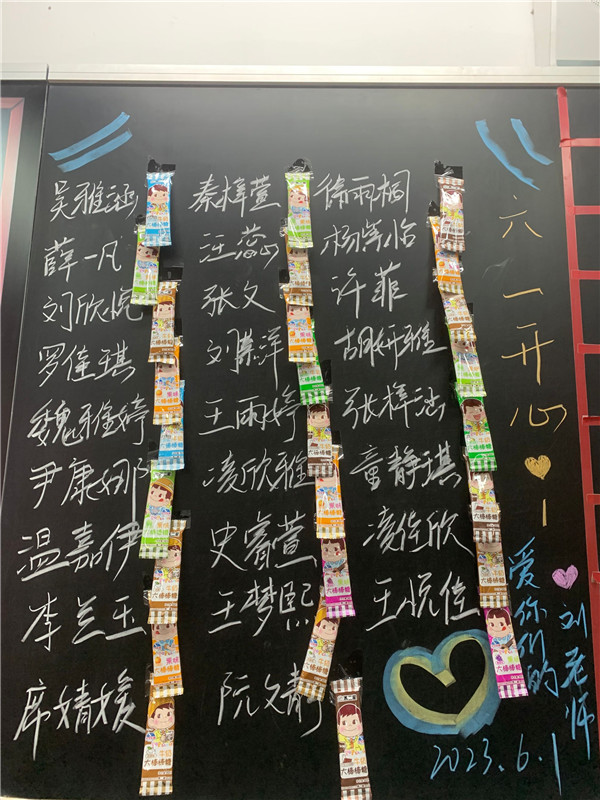 吴雅涵
薛一凡
刘欣悦
罗佳琪
魏雅婷
尹康娜
温嘉伊
李兰玉
席婧媛
秦梓萱
汪蕊
张文
王雨婷
凌欣雅
史睿萱
王梦熙
阮文静
徐雨桐
许菲
胡妍雅
张梓涵
童静琪
凌佳欣
王悦佳
六一开心!
爱你们的
刘老师
2023.6.1
六棒棒糖